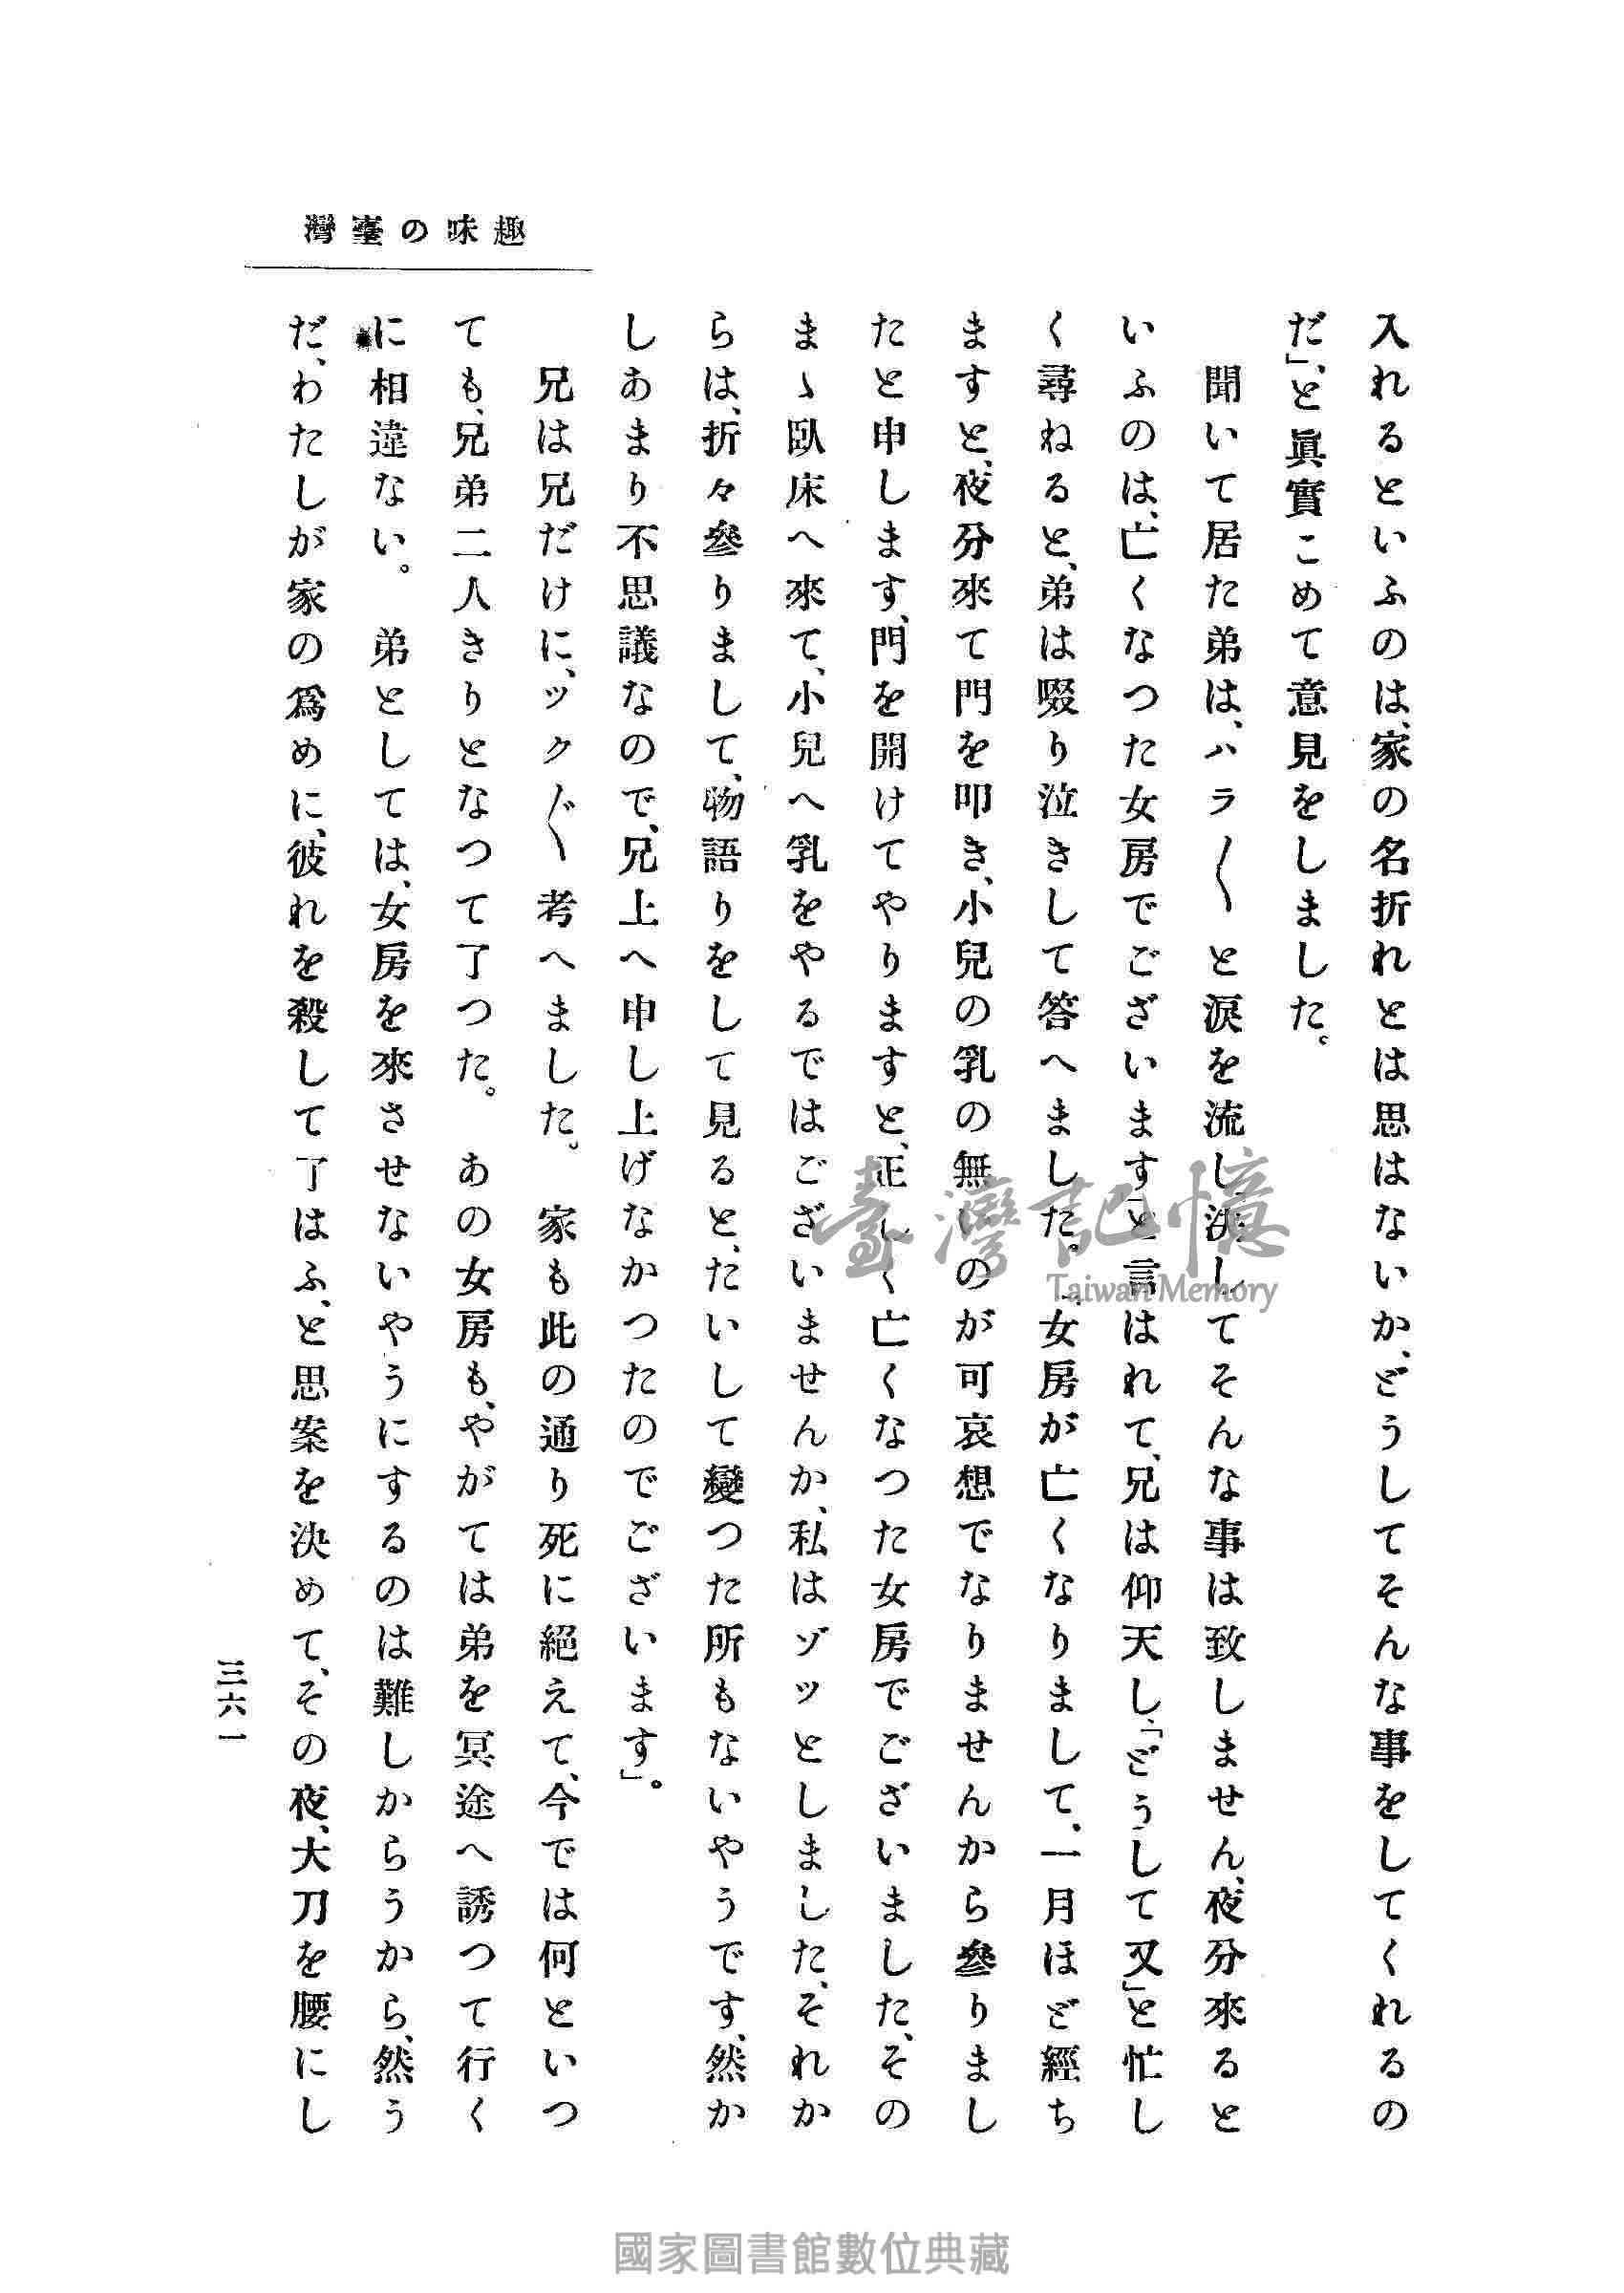 趣味の臺灣
入れるといふのは、家の名折れとは思はないか、どうしてそんな事をしてくれるの
だ」、と眞實こめて意見をしました。
聞いて居た弟は、ハラ〱と涙を流し「決してそんな事は致しません、夜分來ると
いふのは、亡くなつた女房でございますと言はれて、兄は仰天し、「どうして又」と忙し
く尋ねると、弟は啜り泣きして答へました。「女房が亡くなりまして、一月ほど經ち
ますと、夜分來て門を叩き、小兒の乳の無いのが可哀想でなりませんから參りまし
たと申します、門を開けてやりますと、正しく亡くなつた女房でございました、その
まゝ臥床へ來て、小兒へ乳をやるではございませんか、私はゾッとしました、それか
らは、折々參りまして、物語りをして見ると、たいして變つた所もないやうです、然か
しあまり不思議なので、兄上へ申し上げなかつたのでございます」。
兄は兄だけに、ツク〲考へました。　家も此の通り死に絕えて、今では何といつ
ても、兄弟二人きりとなつて了つた。　あの女房も、やがては弟を冥途へ誘つて行く
に相違ない。　弟としては、女房を來させないやうにするのは難しからうから、然う
だ、わたしが家の爲めに、彼れを殺して了はふ、と思案を決めて、その夜、大刀を腰にし
三六一
臺灣記憶
Taiwan Memory
國家圖書館數位典藏